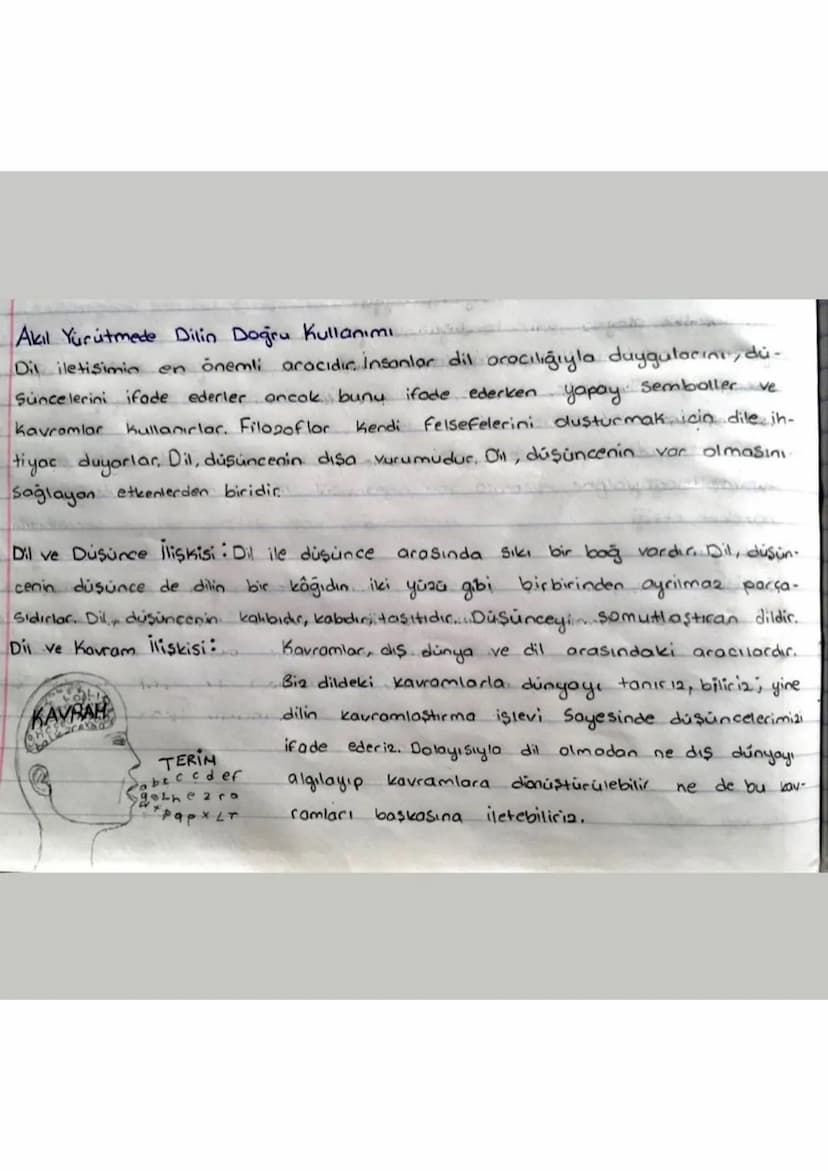 Akıl Yürütmede Dilin Doğru Kullanımı
Dil iletişimin en önemli aracıdır. İnsanlar dil aracılığıyla duygularını, dü-
şüncelerini ifade ederler ancak bunu ifade ederken yapay semboller ve
kavramlar kullanırlar. Filozoflar kendi felsefelerini oluşturmak için dile ih-
tiyaç duyarlar. Dil, düşüncenin dışa vurumudur. Dil, düşüncenin var olmasını
sağlayan etkenlerden biridir.
Dil ve Düşünce İlişkisi: Dil ile düşünce arasında sıkı bir bağ vardır. Dil, düşün-
cenin düşünce de dilin bir kâğıdın iki yüzü gibi birbirinden ayrılmaz parça-
sıdırlar. Dil, düşüncenin kalıbıdır, kabıdır, taşıtıdır... Düşünceyi somutlaştıran dildir.
Dil ve Kavram İlişkisi: Kavramlar, dış dünya ve dil arasındaki aracılardır.
Biz dildeki kavramlarla dünyayı tanırız, biliriz; yine
dilin kavramlaştırma işlevi sayesinde düşüncelerimizi
ifade ederiz. Dolayısıyla dil olmadan ne dış dünyayı
algılayıp kavramlara dönüştürülebilir ne de bu kav-
ramları başkasına iletebiliriz.
KAVRAM
TERİM